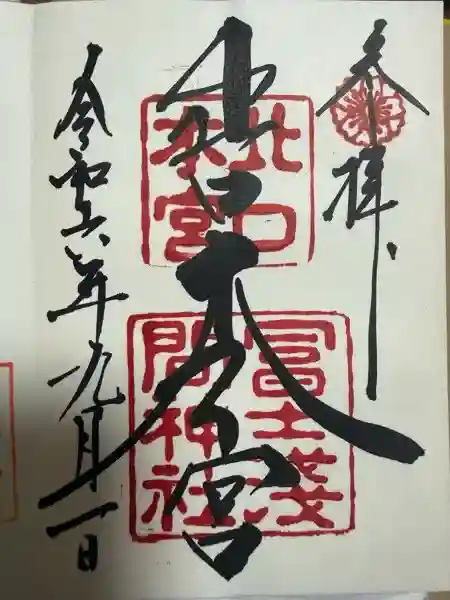 奉拝
北口本宮
北口
本宮
冨士淺
間神社
令和六年九月一日